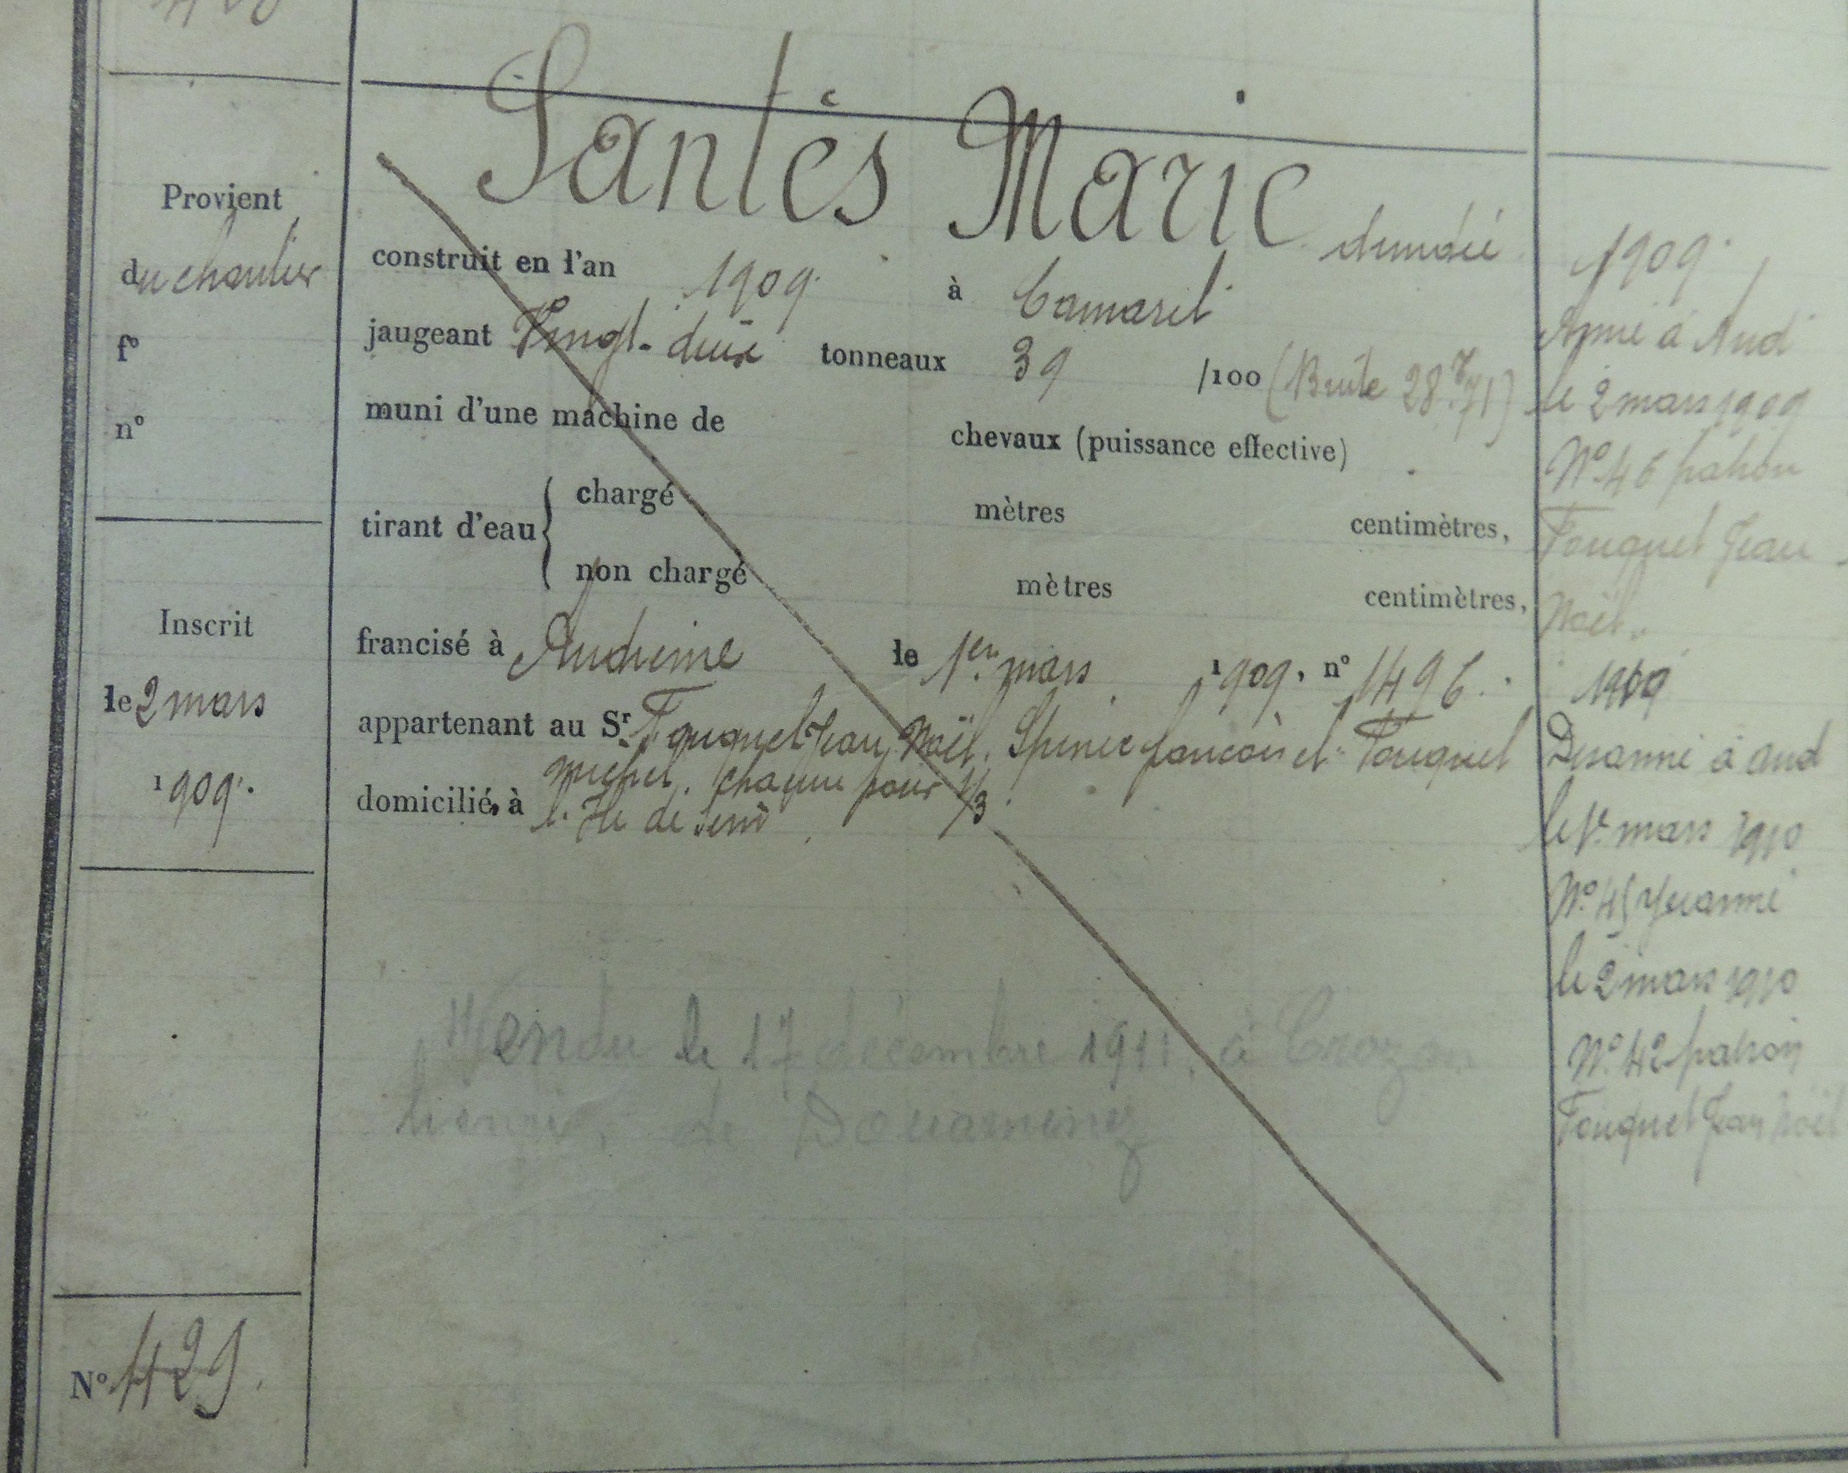 Santès Marie dundée
Provient
du chantier
f°
n°
construit en l'an 1909. à Camaret
jaugeant Vingt-deux tonneaux 39 /100 (Brute 28Tx71)
muni d'une machine de chevaux (puissance effective)
tirant d'eau
chargé mètres centimètres,
non chargé mètres centimètres,
Inscrit
le 2 mars
1909.
francisé à Audierne le 1er mars 1909. n° 1496.
appartenant au Sr Fouquet Jean Noël. Spinec françois et Fouquet
michel. chacun pour 1/3.
domicilié à l'Ile de Sein
Vendu le 17 décembre 1911. à Crozon
de Douarnenez
N° 429.
1909.
Armé à Aud
le 2 mars 1909
N° 46 patron
Fouquet Jean
Noël.
Désarmé à aud
le 1er mars 1910
N° 45 Réarmé
le 2 mars 1910
N° 42 patron
Fouquet Jean Noël